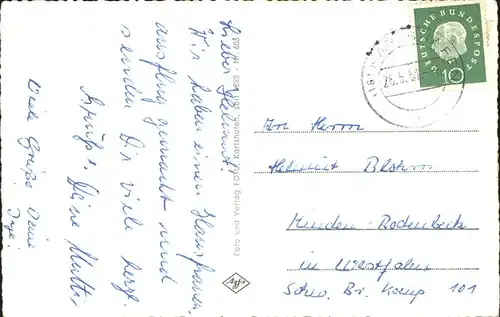 Lieber Helmut!
Wir haben einen Hausfrauen-
ausflug gemacht und
senden Dir viele herzl.
Grüße. Deine Mutti.
Viele Grüße Deine
Inge.
Foto und Verlag FOX, Karlshafen
DEUTSCHE BUNDESPOST
10
26.5.60
An Herrn
Helmut
Minden-Rodenbeck
in Westfalen
Schw. Br. Kamp 101